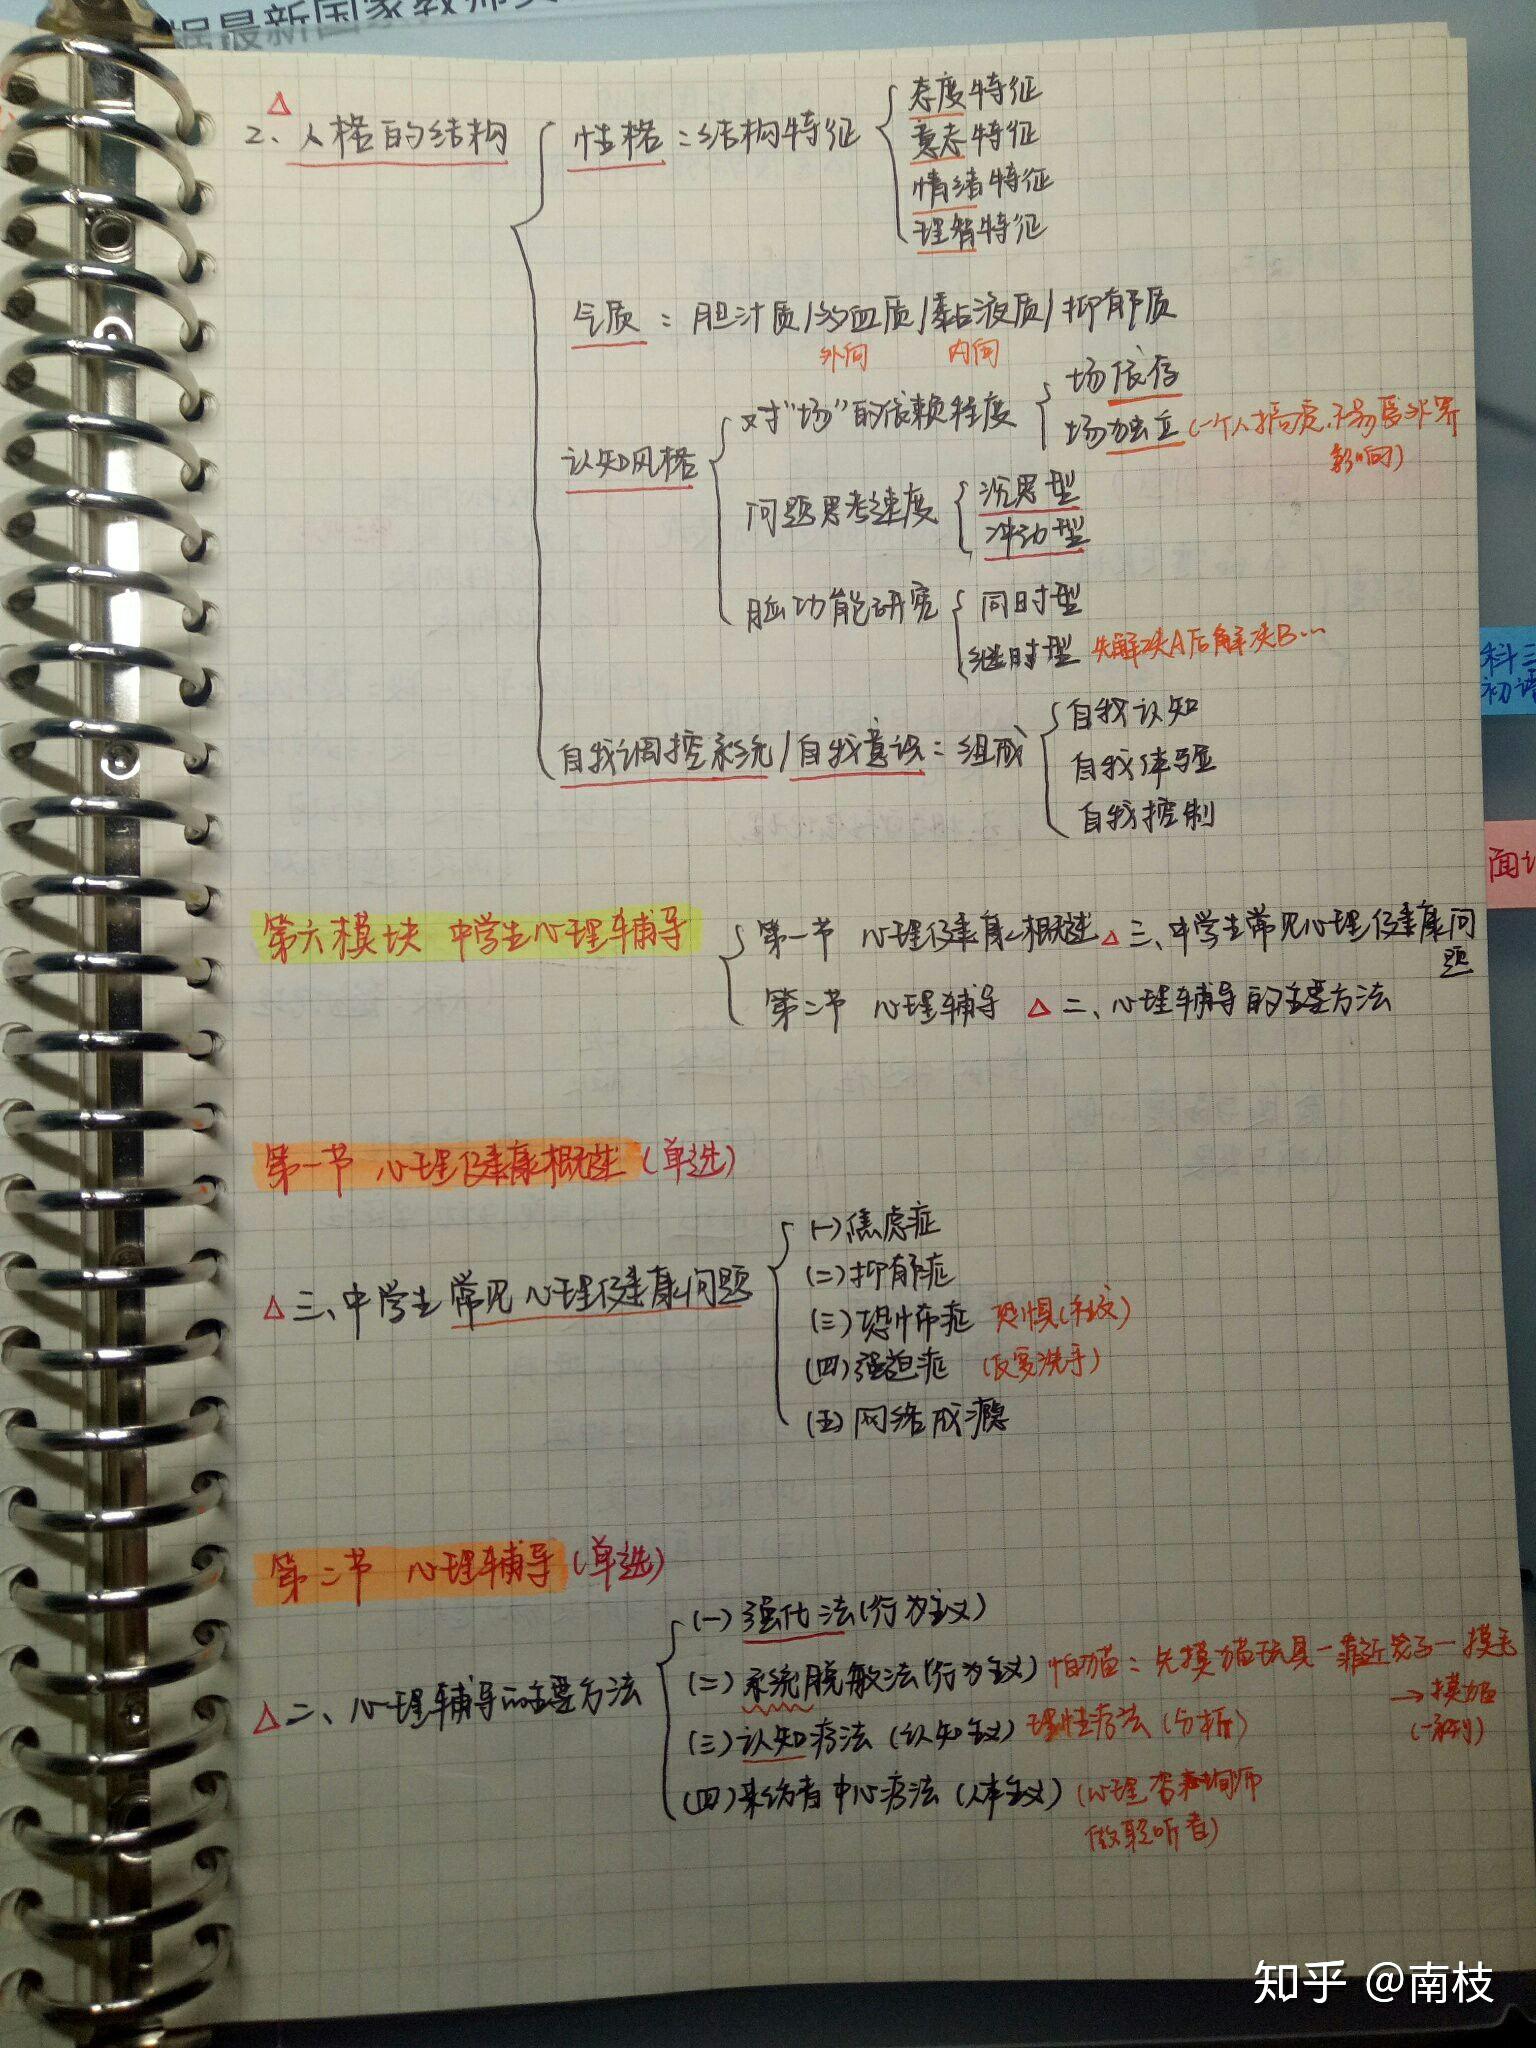 据最新国家教师
△
2、人格的结构
性格：结构特征
态度特征
意志特征
情绪特征
理智特征
气质：胆汁质/多血质/黏液质/抑郁质
外向 内向
认知风格
对“场”的依赖程度
场依存
场独立(一个人搞定,不易受外界
影响)
问题思考速度
沉思型
冲动型
脑功能研究
同时型
继时型 先解决A后解决B…
自我调控系统/自我意识：组成
自我认知
自我体验
自我控制
科三
初语
面试
第六模块 中学生心理辅导
第一节 心理健康概述△三、中学生常见心理健康问
题
第二节 心理辅导 △二、心理辅导的主要方法
第一节 心理健康概述(单选)
△三、中学生常见心理健康问题
(一)焦虑症
(二)抑郁症
(三)恐怖症 恐惧(社交)
(四)强迫症 (反复洗手)
(五)网络成瘾
第二节 心理辅导(单选)
△二、心理辅导的主要方法
(一)强化法(行为主义)
(二)系统脱敏法(行为主义) 怕猫：先摸猫玩具—靠近笼子—摸毛
→摸猫
(三)认知疗法(认知主义) 理性疗法(分析)
(四)来访者中心疗法(人本主义) (心理咨询师
做聆听者)
知乎 @南枝